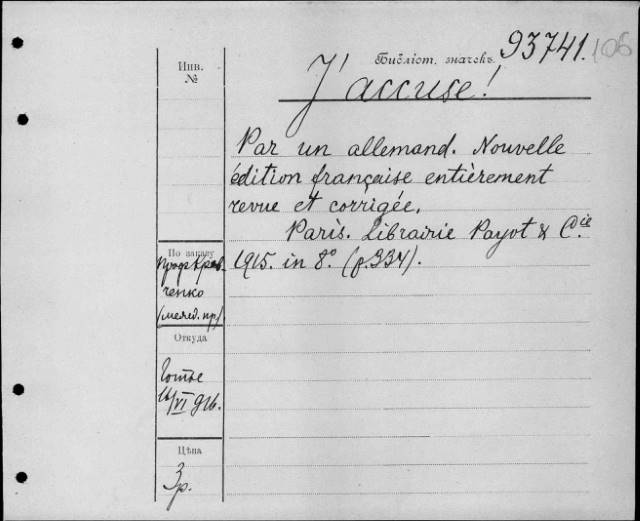 Библіот. значекъ 93741. 106
Инв.
№
J'accuse!
Par un allemand. Nouvelle
édition française entièrement
revue et corrigée.
Paris. Librairie Payot & Cie
1915. in 8º. (p.334).
По заказу
Проф Крав
ченко
Откуда
Готье
16/VI 916.
Цѣна
3 р.